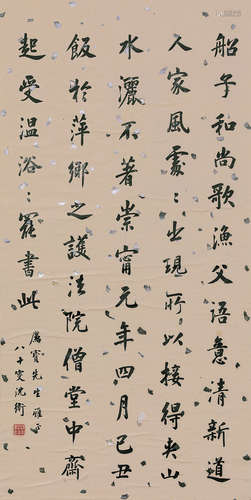 船子和尚歌漁父語意清新道
人家風處〻出現所以接得夾山
水灑不著崇甯元年四月己丑
飯於萍鄉之護法院僧堂中齋
起受温浴〻罷書此
先生雅正
八十叟沈衛